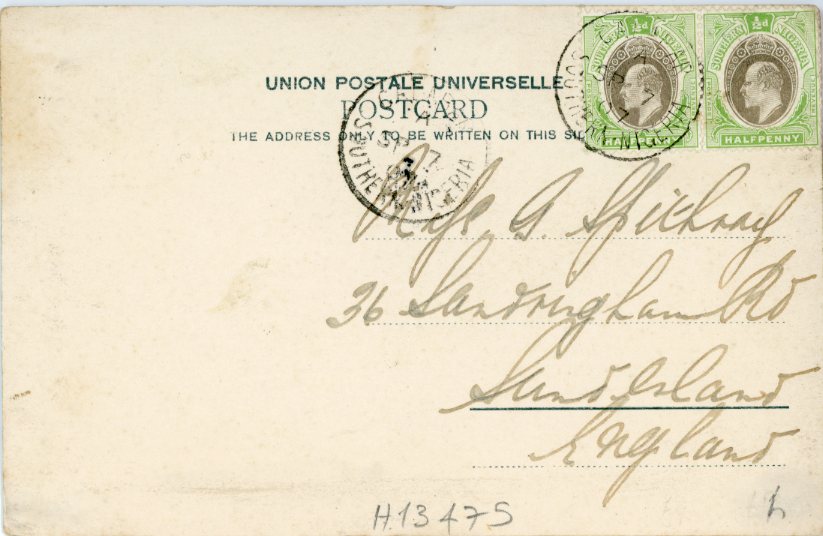 UNION POSTALE UNIVERSELLE
POSTCARD
THE ADDRESS ONLY TO BE WRITTEN ON THIS SIDE
SOUTHERN NIGERIA
½d
HALFPENNY
SOUTHERN NIGERIA
½d
HALFPENNY
CALABAR
SOUTHERN NIGERIA
CALABAR
SP 7
SOUTHERN NIGERIA
G.
36 Sandringham Rd
Sunderland
England
H.13475